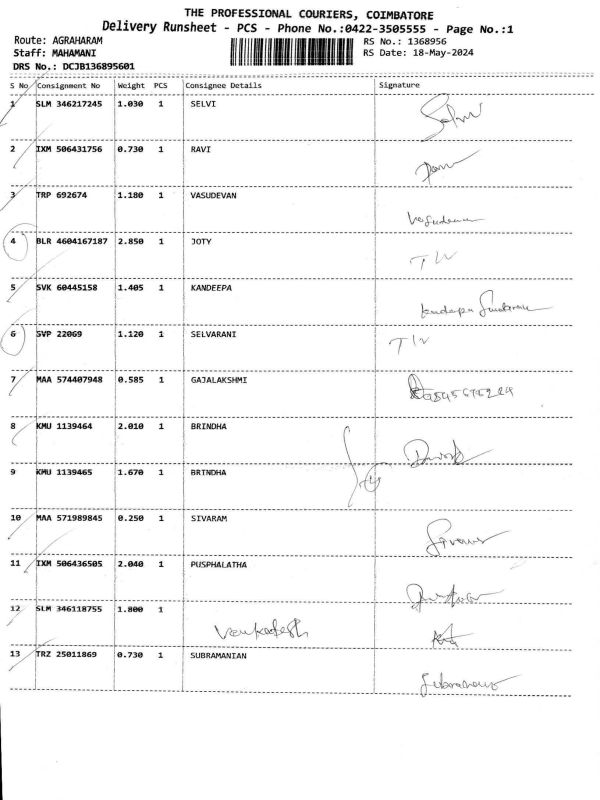 THE PROFESSIONAL COURIERS, COIMBATORE
Delivery Runsheet - PCS - Phone No.:0422-3505555 - Page No.:1
Route: AGRAHARAM RS No.: 1368956
Staff: MAHAMANI RS Date: 18-May-2024
DRS No.: DCJB136895601
S No Consignment No Weight PCS Consignee Details Signature
1 SLM 346217245 1.030 1 SELVI
2 IXM 506431756 0.730 1 RAVI
3 TRP 692674 1.180 1 VASUDEVAN
4 BLR 4604167187 2.850 1 JOTY
5 SVK 60445158 1.405 1 KANDEEPA
6 SVP 22069 1.120 1 SELVARANI
7 MAA 574407948 0.585 1 GAJALAKSHMI
8 KMU 1139464 2.010 1 BRINDHA
9 KMU 1139465 1.670 1 BRINDHA
10 MAA 571989845 0.250 1 SIVARAM
11 IXM 506436505 2.040 1 PUSPHALATHA
12 SLM 346118755 1.800 1 Venkadesh
13 TRZ 25011869 0.730 1 SUBRAMANIAN